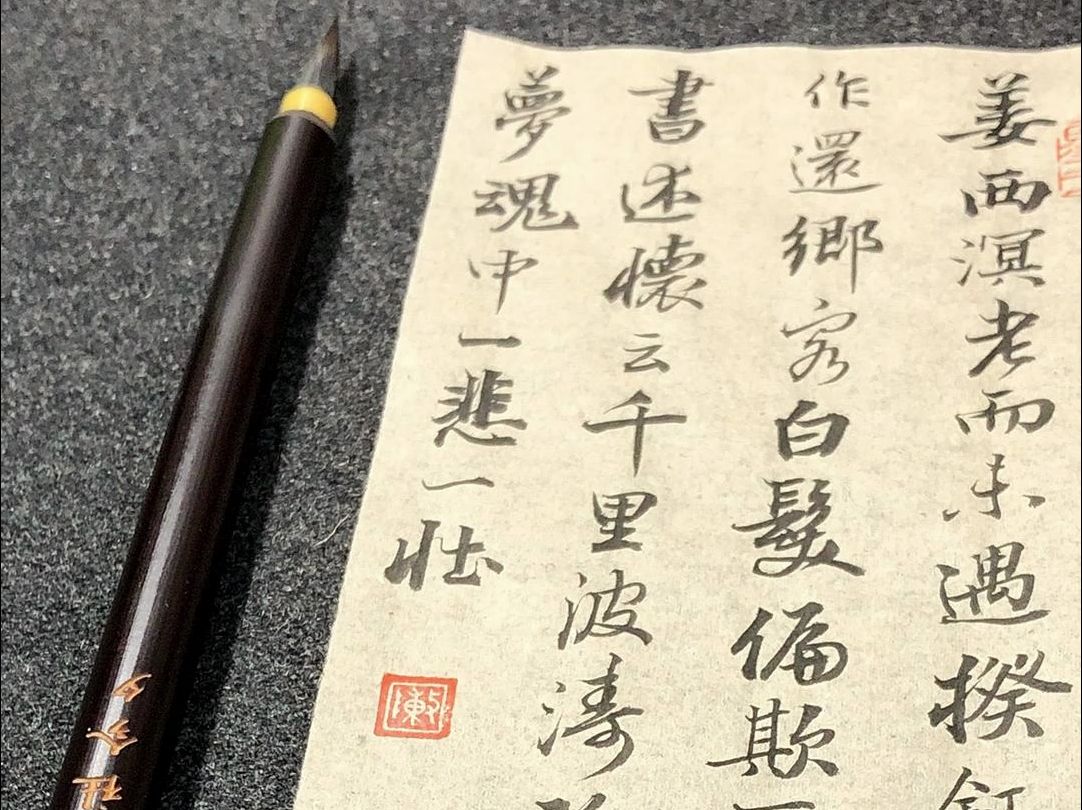 姜西溟老而未遇揆
作還鄉客白髮偏欺
書述懷云千里波濤
夢魂中一悲一壯